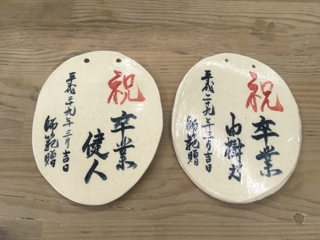 祝
卒業
健人
平成二十九年三月吉日
師範贈
祝
卒業
由樹
平成二十九年三月吉日
師範贈